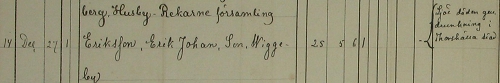 berg, Husby-Rekarne församling
14 Dec 27 1 Eriksson, Erik Johan, Son, Wigge- 25 5 6 1
by)
Ljöt döden gen
drunkning i
Thorshälla stad